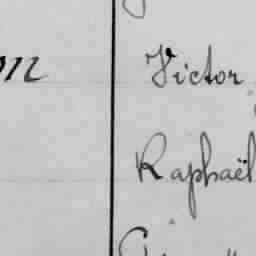 Victor
Raphaël